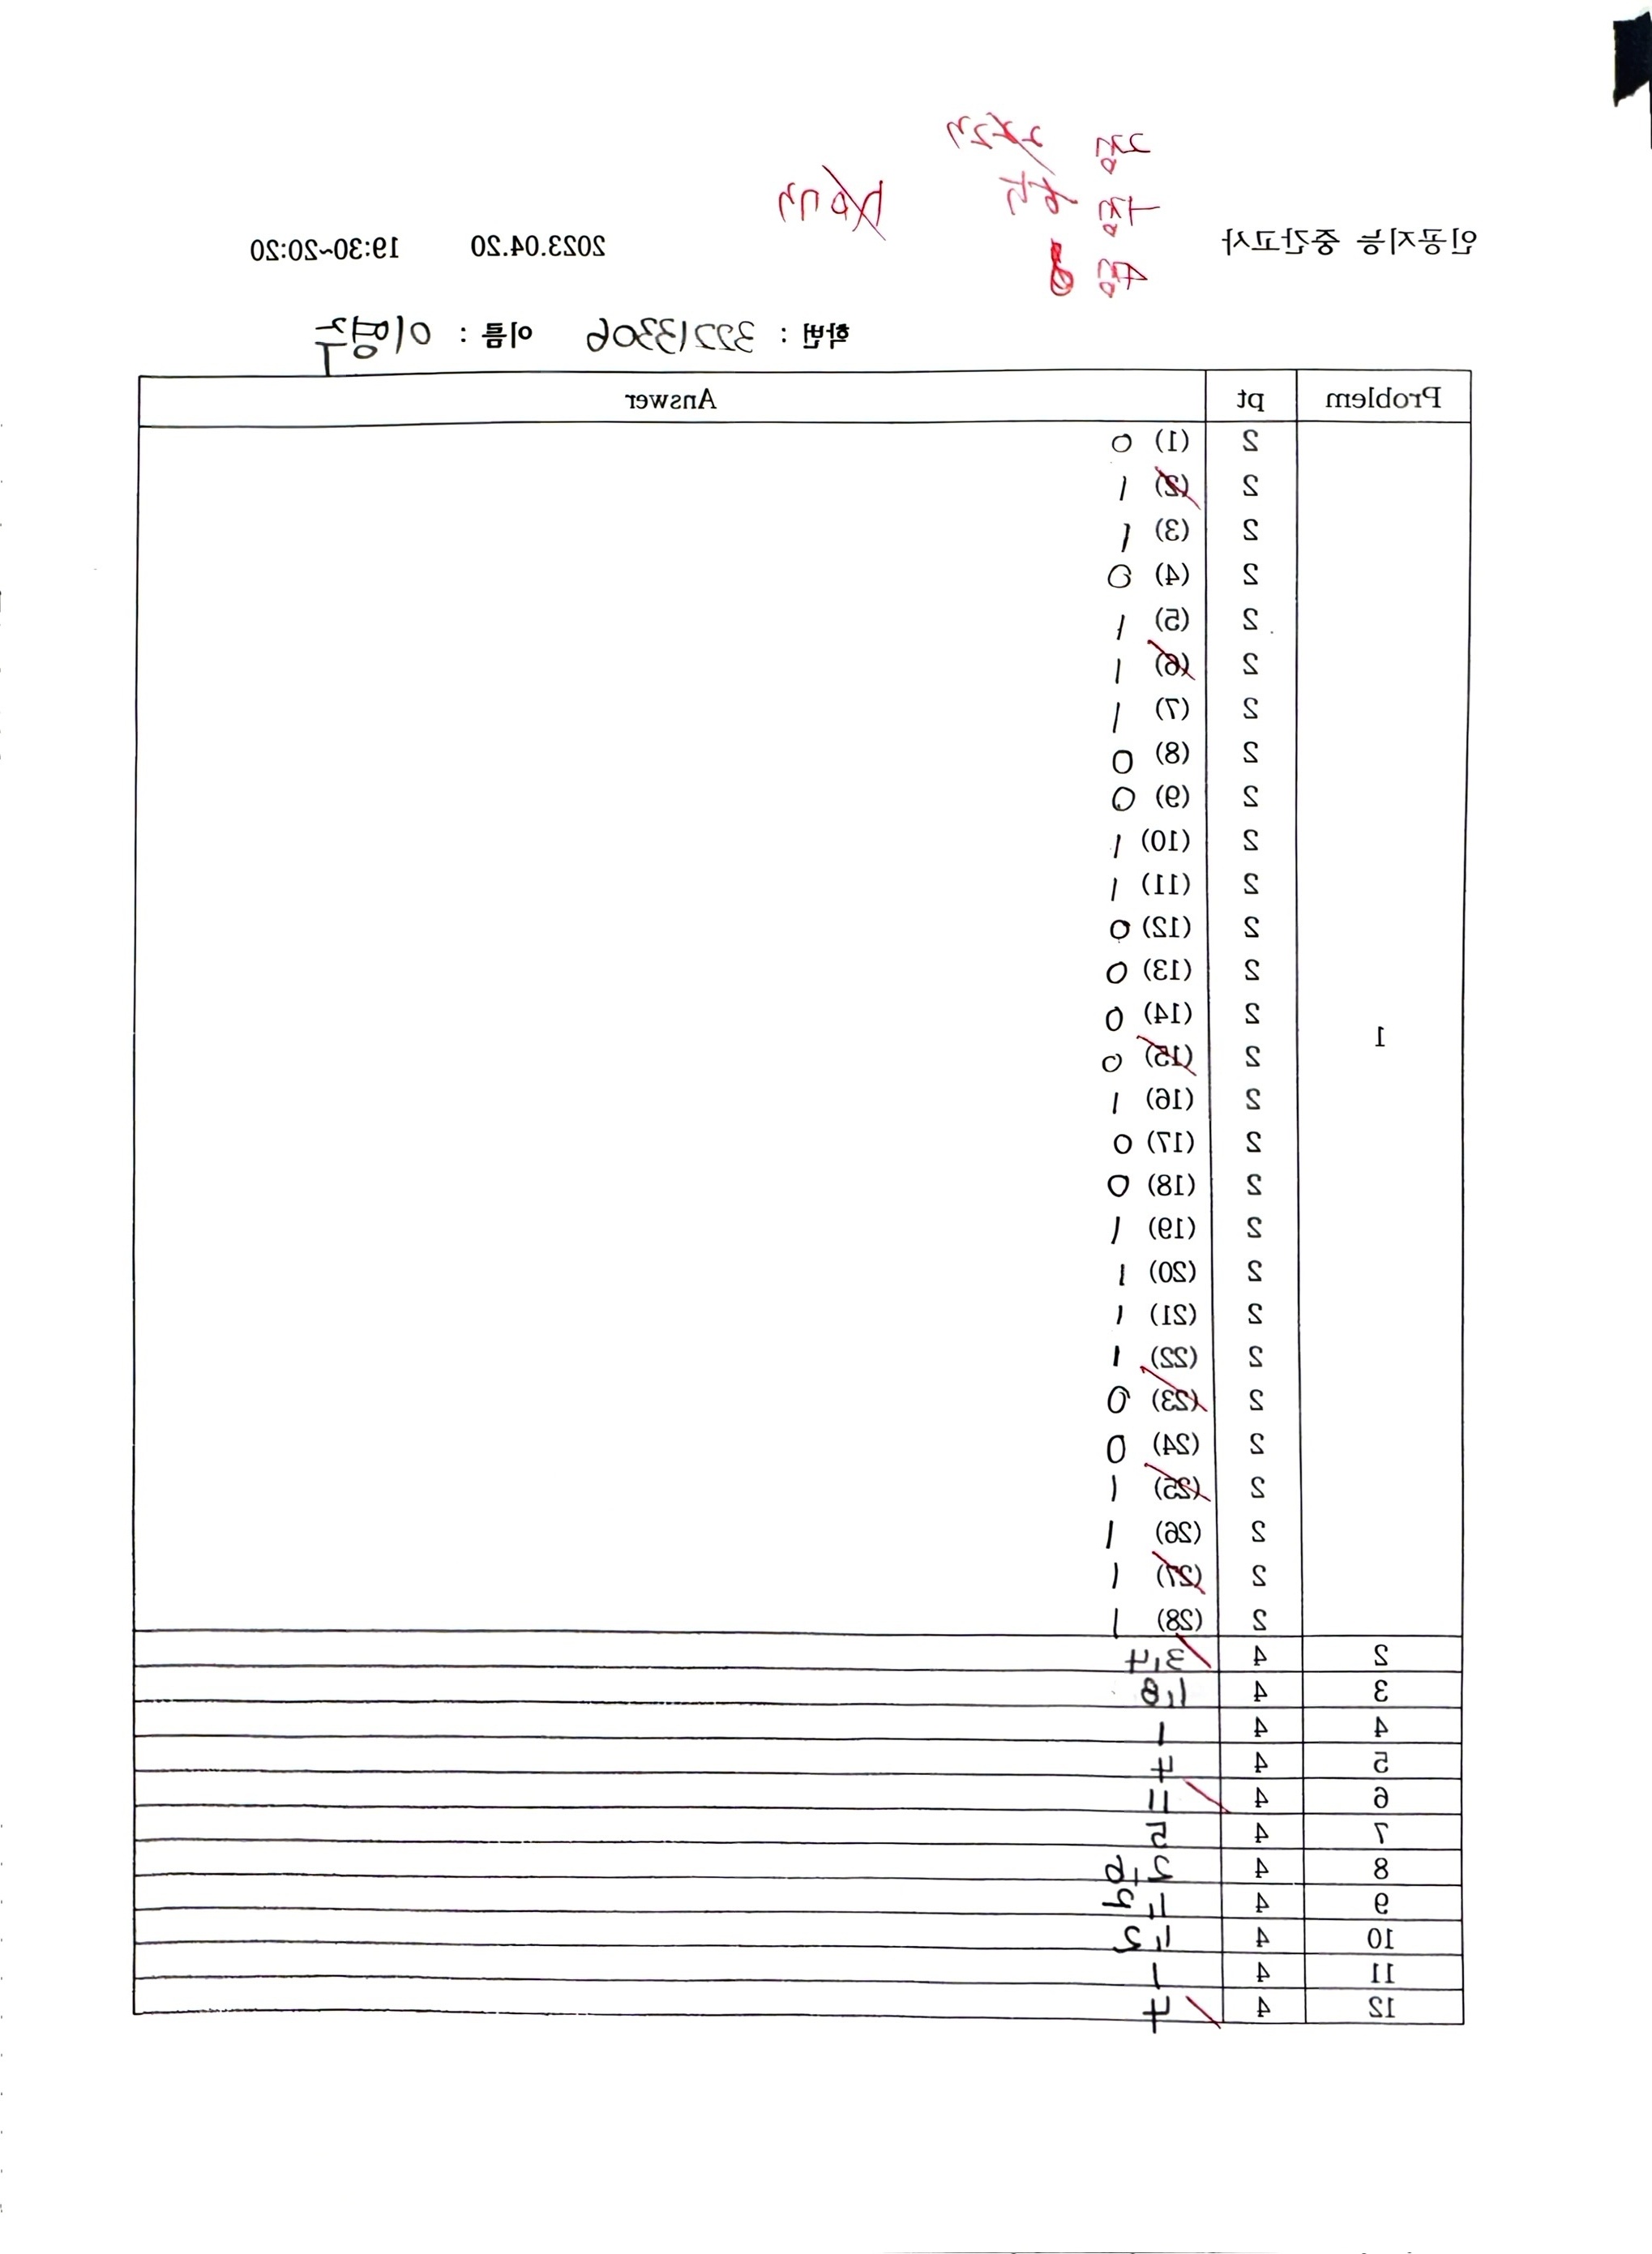 인공지능 중간고사 2023.04.20 19:30~20:20
학번 : 32213306 이름 : 이영주
Problem pt Answer
1
2 (1) 0
2 (2) 1
2 (3) 1
2 (4) 0
2 (5) 1
2 (6) 1
2 (7) 1
2 (8) 0
2 (9) 0
2 (10) 1
2 (11) 1
2 (12) 0
2 (13) 0
2 (14) 0
2 (15) 0
2 (16) 1
2 (17) 0
2 (18) 0
2 (19) 1
2 (20) 1
2 (21) 1
2 (22) 1
2 (23) 0
2 (24) 0
2 (25) 1
2 (26) 1
2 (27) 1
2 (28) 1
2 4 3,4
3 4 1,8
4 4 1
5 4 7
6 4 11
7 4 5
8 4
9 4
10 4
11 4 1
12 4 7